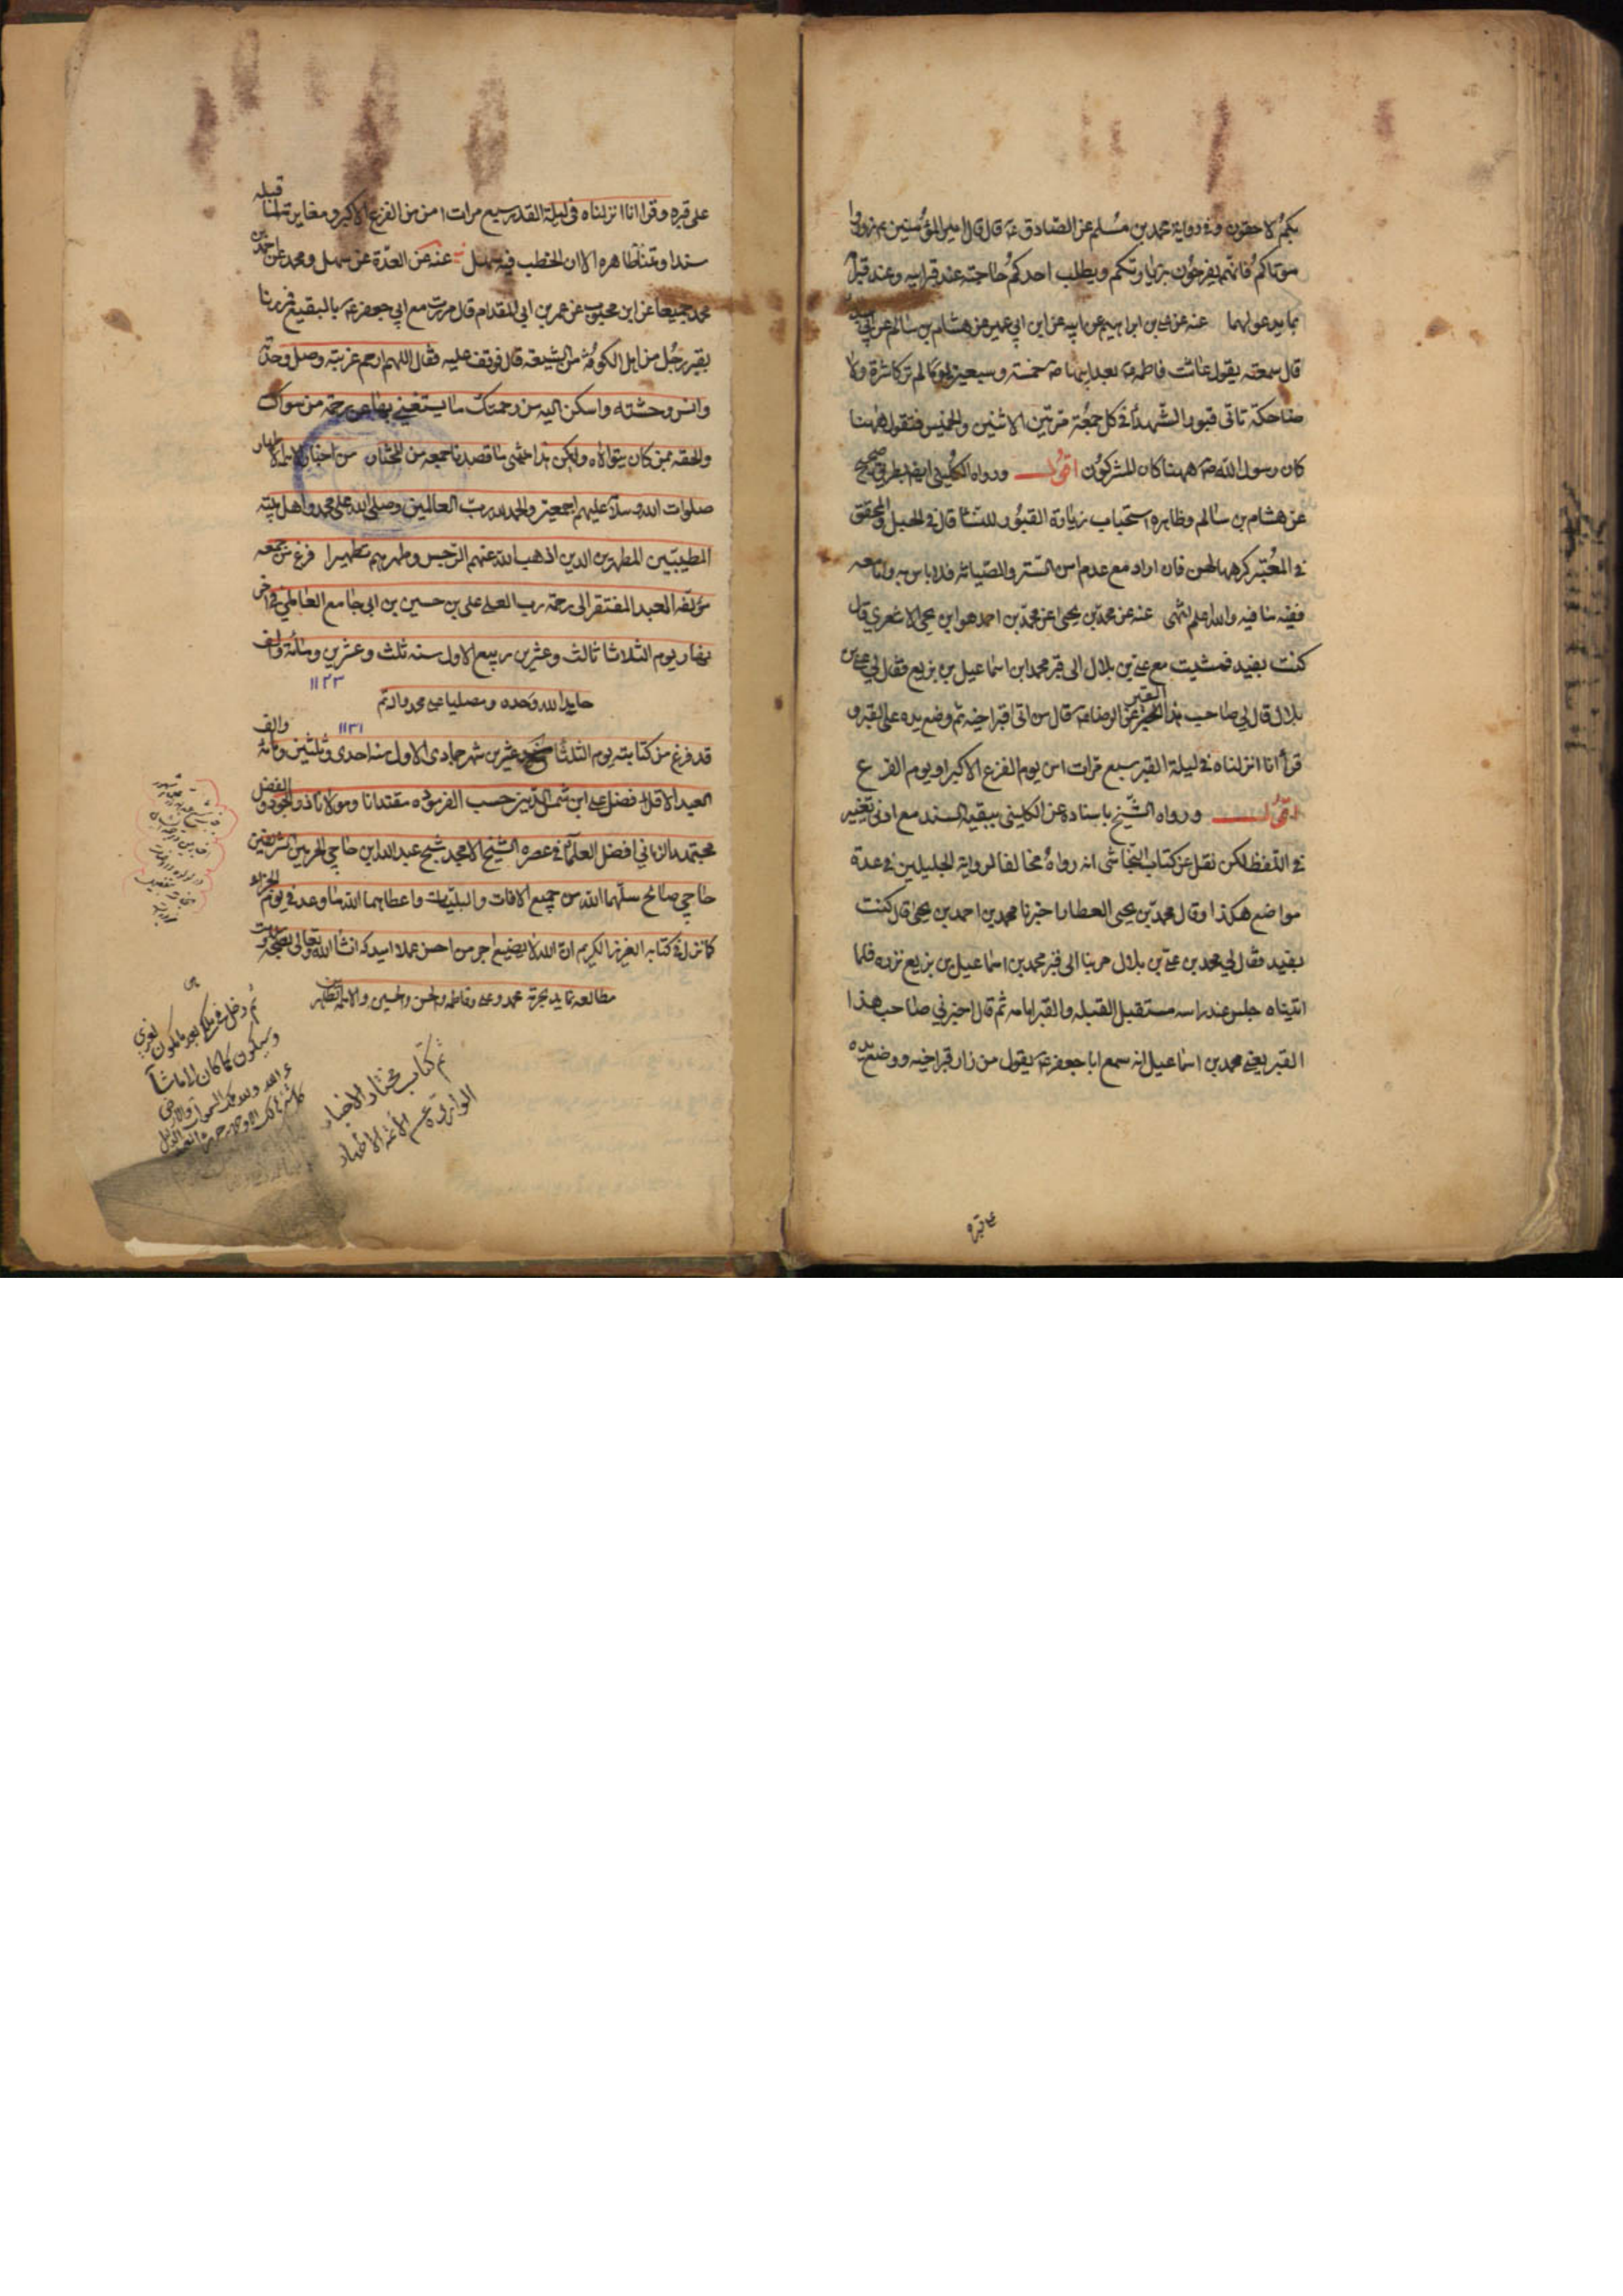 بكم لاحقون وفي رواية محمد بن مسلم عن الصادق ع قال قال امير المؤمنين ع زوروا
موتاكم فانهم يفرحون بزيارتكم ويطلب احدكم حاجته عند قبر ابيه وعند قبر امه
بما يدعو لهما عنه عن علي بن ابراهيم عن ابيه عن ابن ابي عمير عن هشام بن سالم عن ابي عبد الله
قال سمعته يقول عاشت فاطمة ع بعد ابيها ص خمسة وسبعين يوما لم تر كاشرة ولا
ضاحكة تاتي قبور الشهداء في كل جمعة مرتين الاثنين والخميس فتقول ههنا
كان رسول الله ص ههنا كان المشركون اقول ورواه الكليني ايضا بطريق صحيح
عن هشام بن سالم وظاهره استحباب زيارة القبور للنساء قال في الحبل والمحقق
في المعتبر كرهها لهن فان اراد مع عدم امن الستر والصيانة فلا باس به ولنا معه
ففيه ما فيه والله اعلم انتهى عنه عن محمد بن يحيى عن محمد بن احمد هو ابن يحيى الاشعري قال
كنت بفيد فمشيت مع علي بن بلال الى قبر محمد ابن اسماعيل بن بزيع فقال لي علي بن
بلال قال لي صاحب هذا القبر عن الرضا ع قال من اتى قبر اخيه ثم وضع يده على القبر و
قرأ انا انزلناه في ليلة القدر سبع مرات امن يوم الفزع الاكبر او يوم الفزع
اقول ورواه الشيخ باسناده عن الكليني ببقية السند مع ادنى تغيير
في اللفظ لكن نقل عن كتاب النجاشي انه رواه مخالفا لرواية الجليلين في عدة
مواضع هكذا وقال محمد بن يحيى العطار اخبرنا محمد بن احمد بن يحيى قال كنت
بفيد فقال لي محمد بن علي بن بلال مر بنا الى قبر محمد بن اسماعيل بن بزيع نزوره فلما
اتيناه جلس عند راسه مستقبل القبلة والقبر امامه ثم قال اخبرني صاحب هذا
القبر يعني محمد بن اسماعيل انه سمع ابا جعفر ع يقول من زار قبر اخيه ووضع يده
على قبره
على قبره وقرا انا انزلناه في ليلة القدر سبع مرات امن من الفزع الاكبر ومغايرته لما قبله
سندا ومتنا ظاهره الا ان الخطب فيه سهل عنه عن العدة عن سهل ومحمد عن احمد بن
محمد جميعا عن ابن محبوب عن عمر بن ابي المقدام قال مررت مع ابي جعفر ع بالبقيع فمررنا
بقبر رجل من اهل الكوفة من الشيعة قال فوقف عليه فقال اللهم ارحم غربته وصل وحدته
وانس وحشته واسكن اليه من رحمتك ما يستغني بها عن رحمة من سواك
والحقه بمن كان يتولاه وليكن هذا منتهى ما قصدنا جمعه من المختار من اخبار الائمة الاطهار
صلوات الله وسلامه عليهم اجمعين والحمد لله رب العالمين وصلى الله على محمد واهل بيته
الطيبين المطهرين الذين اذهب الله عنهم الرجس وطهرهم تطهيرا فرغ من جمعه
مؤلفه العبد المفتقر الى رحمة رب العلي علي بن حسين بن ابي جامع العاملي في اخر
نهار يوم الثلاثا ثالث وعشرين ربيع الاول سنه ثلث وعشرين ومائة والف
١١٢٣
حامدا لله وحده ومصليا على محمد واله تم
١١٣١
قد فرغ من كتابته يوم الثلثا وعشرين شهر جمادي الاول سنه احدى وثلثين ومائة والف
العبد الاقل فضل علي ابن شمس الدين حسب الفرموده مقتدانا ومولانا ذو الجود والفضل
مجتهد الزماني افضل العلماء في عصره الشيخ الامجد شيخ عبد الله ابن حاجي الحرمين الشريفين
حاجي صالح سلهما الله من جميع الافات والبليات واعطاهما الله ما وعد في يوم الجزاء
كما نزل في كتابه العزيز الكريم ان الله لا يضيع اجر من احسن عملا اميد كه انشا الله تعالى بصحت و
مطالعه نمايد بحرمة محمد وعلي وفاطمة والحسن والحسين والائمة
تم كتاب مختار الاخبار
الواردة عن الأئمة الاطهار
ثم دخل في ملك
وسيكون كما كان الا ما شآ
ء الله ولله ملك السموات والارض